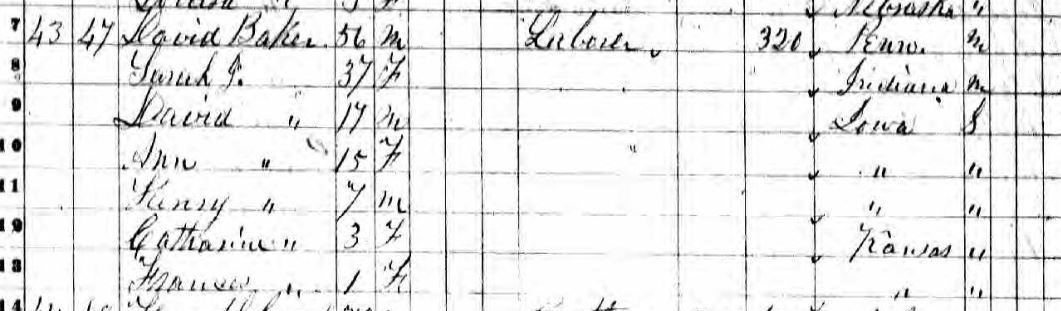 Nebraska "
7 43 47 David Baker 56 M Laborer 320 Penn. M
8 Sarah J. 37 F Indiana M
9 David " 17 M Iowa S
10 Ann " 15 F " "
11 Henry " 7 M " "
12 Catharine " 3 F Kansas "
13 Frances " 1 F " "
14